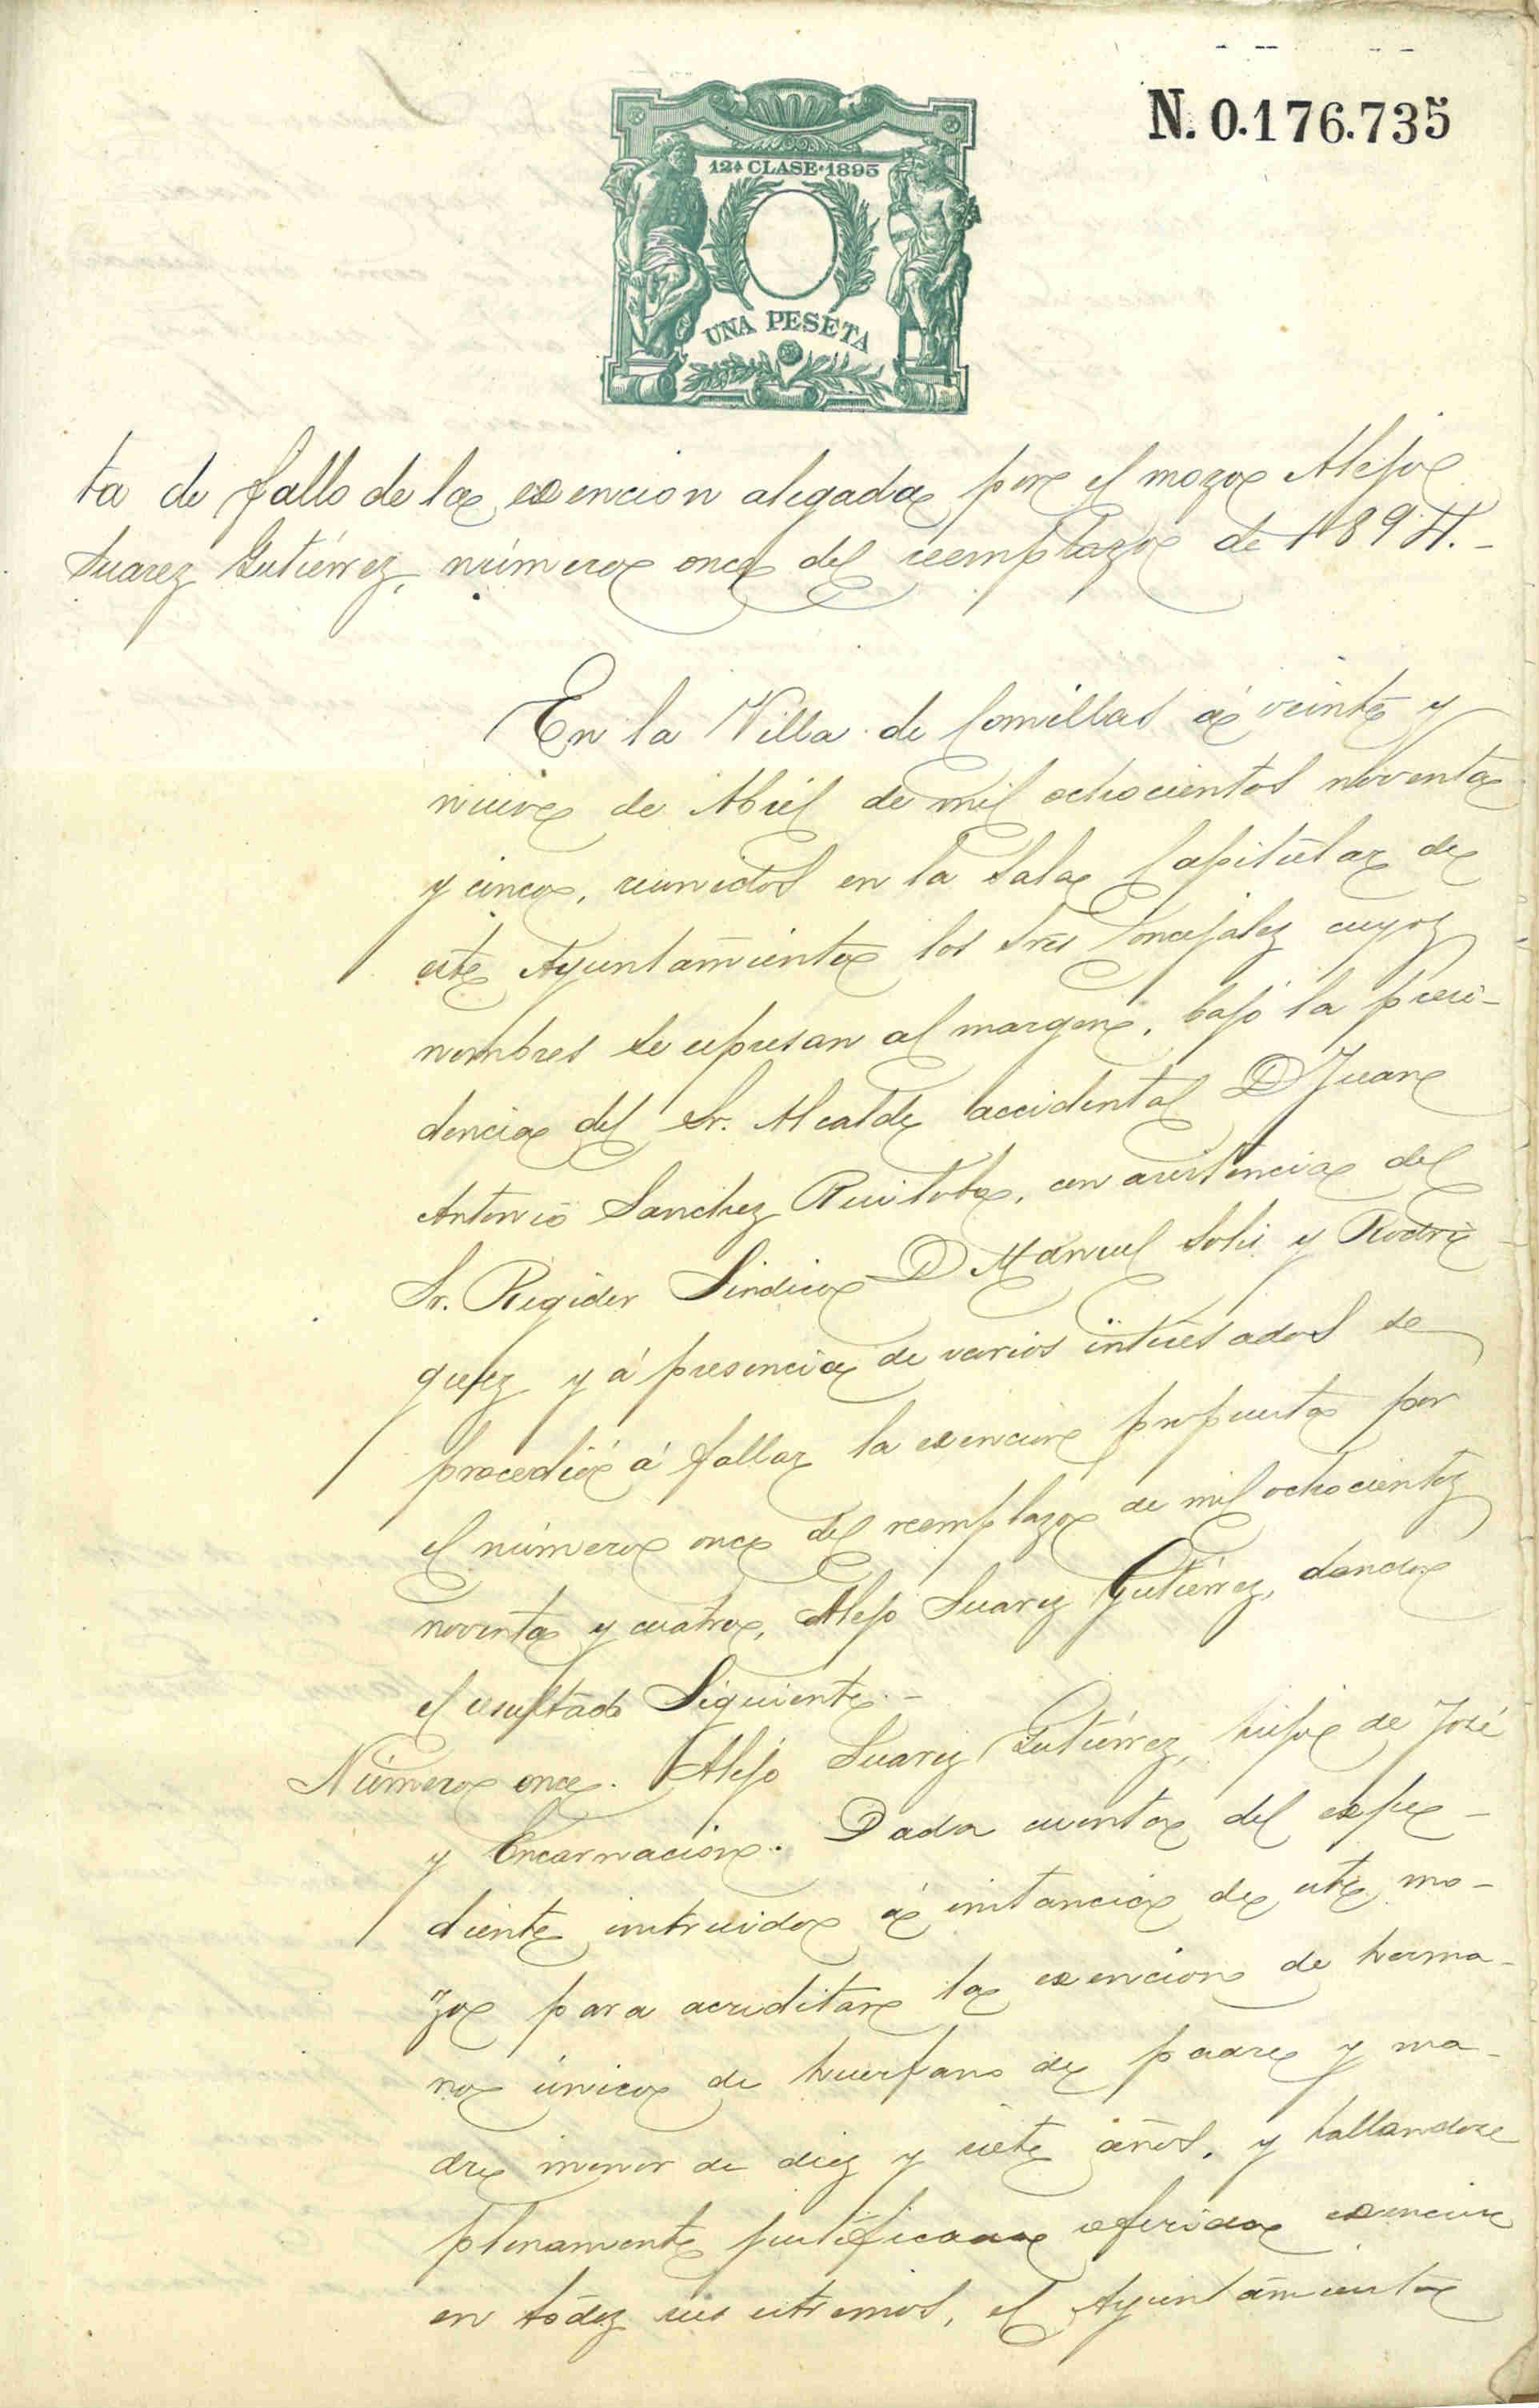 N. 0.176.735
12ª CLASE·1895
UNA PESETA
ta de fallo de la exencion alegada por el mozo Alejo
Suarez Gutiérrez, número once del reemplazo de 1894.-
En la Villa de Comillas á veinte y
nueve de Abril de mil ochocientos noventa
y cinco, reunidos en la Sala Capitular de
este Ayuntamiento los Sres Concejales cuyos
nombres se espresan al margen, bajo la presi-
dencia del Sr. Alcalde accidental D Juan
Antonio Sanchez Ruiloba, con asistencia del
Sr. Regidor Sindico D Manuel Solis y Rodri
guez y á presencia de varios interesados se
procedió á fallar la exencion propuesta por
el número once del reemplazo de mil ochocientos
noventa y cuatro, Alejo Suarez Gutiérrez, dando
el resultado Siguiente.-
Número once. Alejo Suarez Gutiérrez, hijo de José
y Encarnacion. Dada cuenta del expe-
diente instruido á instancia de este mo-
zo para acreditar la exencion de herma-
no único de huerfano de padre y ma-
dre menor de diez y siete años, y hallandose
plenamente justificada referida exencion
en todos sus estremos, el Ayuntamiento